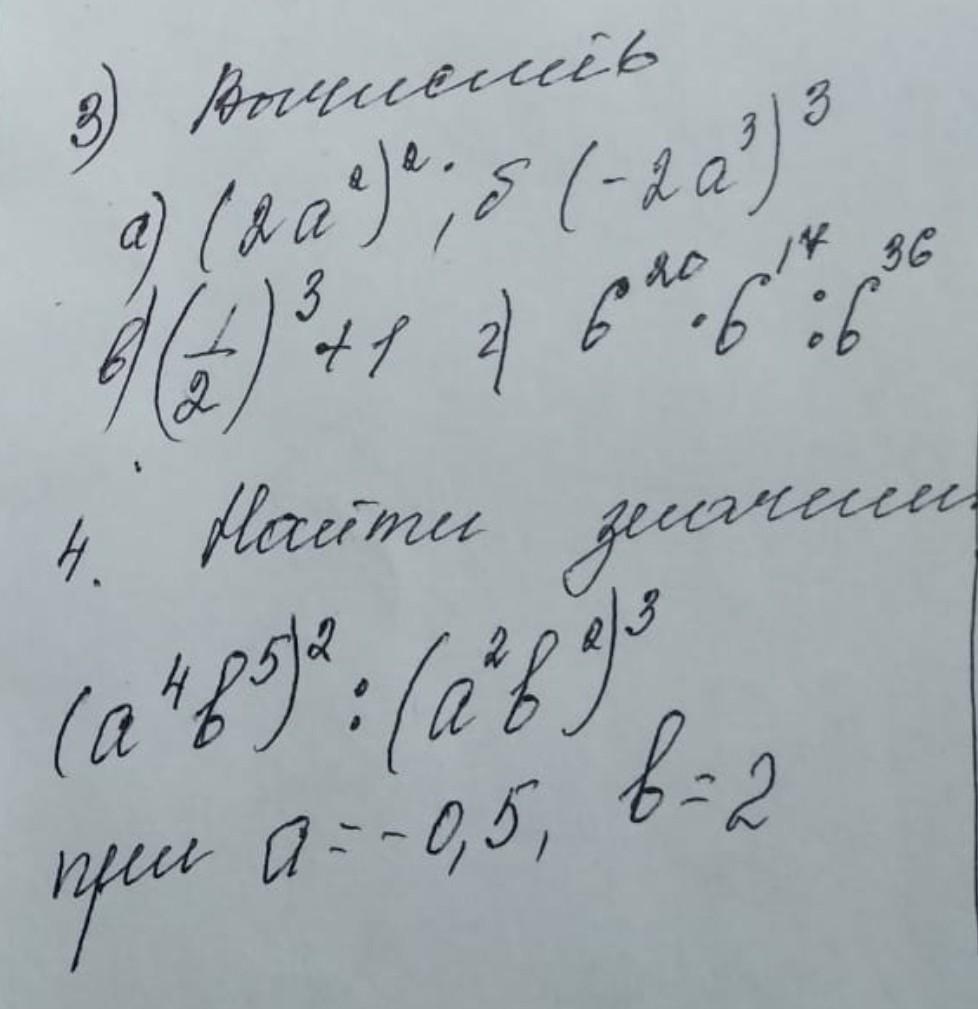 3) Вычислить
а) (2a²)²; б (-2a³)³
в) (1/2)³+1 г) 6²⁰·6¹⁷:6³⁶
4. Найти значени
(a⁴b⁵)²:(a²b²)³
при a=-0,5, b=2